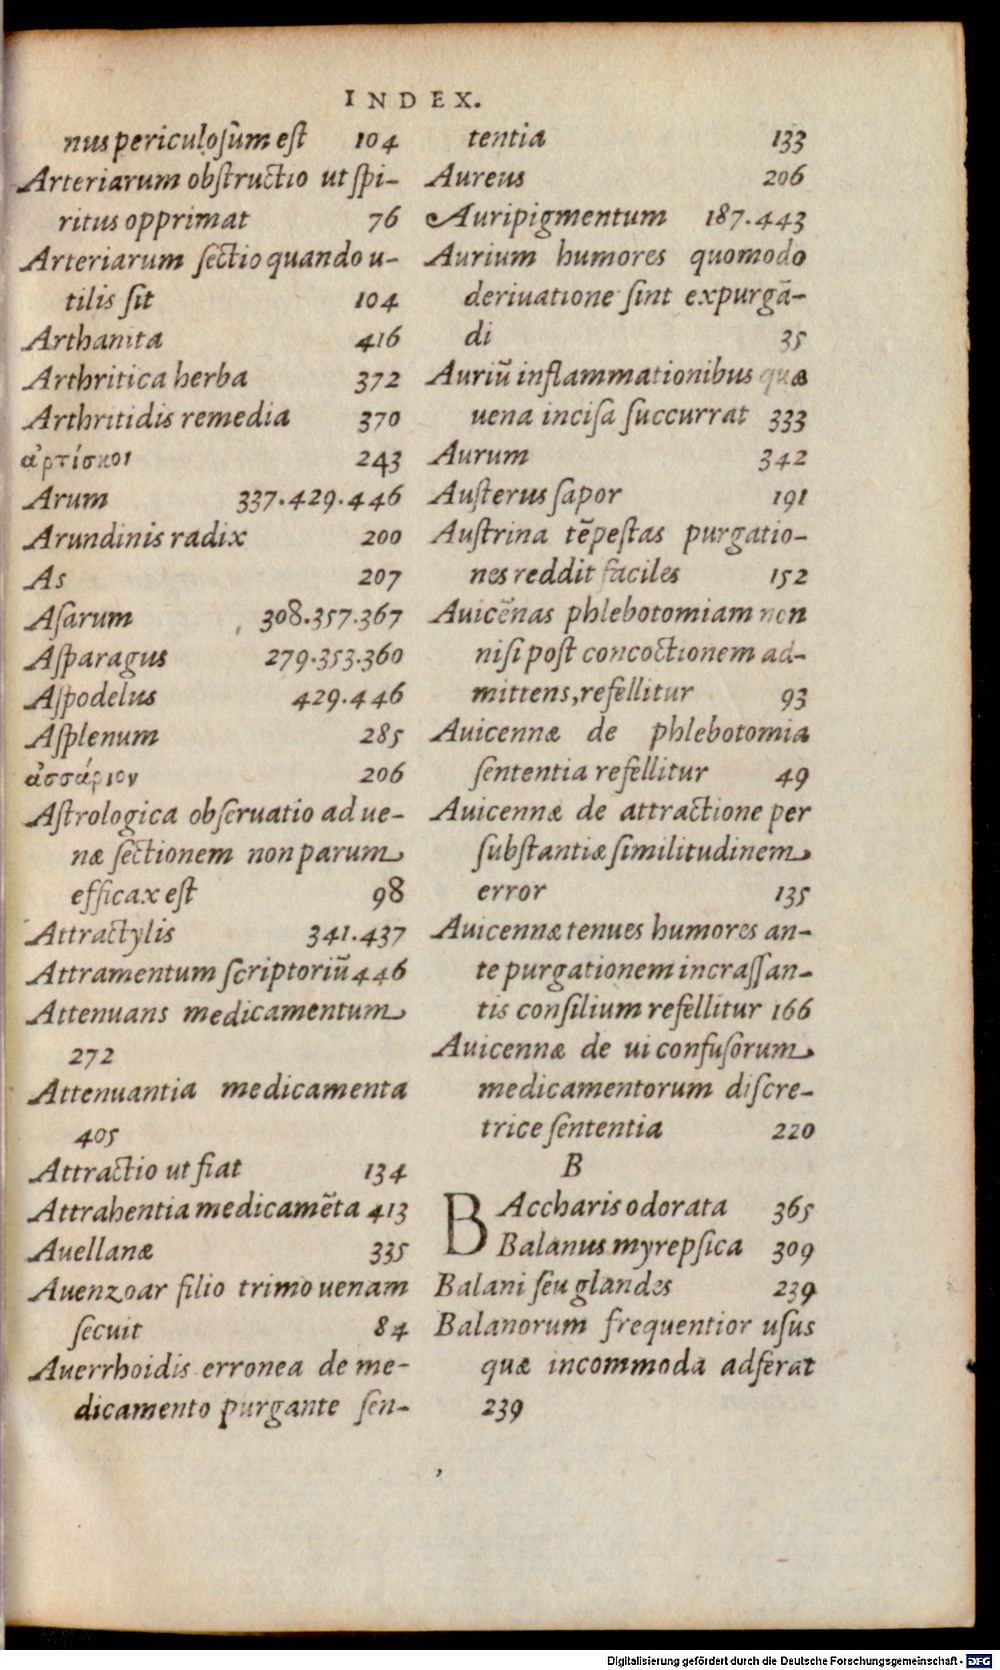 INDEX.
nus periculosum est 104
Arteriarum obstructio ut spi-
ritus opprimat 76
Arteriarum sectio quando u-
tilis sit 104
Arthanita 416
Arthritica herba 372
Arthritidis remedia 370
ἀρτίσκοι 243
Arum 337.429.446
Arundinis radix 200
As 207
Asarum 308.357.367
Asparagus 279.353.360
Aspodelus 429.446
Asplenum 285
ἀσσάριον 206
Astrologica obseruatio ad ue-
næ sectionem non parum
efficax est 98
Attractylis 341.437
Attramentum scriptoriũ 446
Attenuans medicamentum
272
Attenuantia medicamenta
405
Attractio ut fiat 134
Attrahentia medicamẽta 413
Auellanæ 335
Auenzoar filio trimo uenam
secuit 84
Auerrhoidis erronea de me-
dicamento purgante sen-
tentia 133
Aureus 206
Auripigmentum 187.443
Aurium humores quomodo
deriuatione sint expurgã-
di 35
Auriũ inflammationibus quæ
uena incisa succurrat 333
Aurum 342
Austerus sapor 191
Austrina tẽpestas purgatio-
nes reddit faciles 152
Auicẽnas phlebotomiam non
nisi post concoctionem ad-
mittens, refellitur 93
Auicennæ de phlebotomia
sententia refellitur 49
Auicennæ de attractione per
substantiæ similitudinem
error 135
Auicennæ tenues humores an-
te purgationem incrassan-
tis consilium refellitur 166
Auicennæ de ui confusorum
medicamentorum discre-
trice sententia 220
B
BAccharis odorata 365
Balanus myrepsica 309
Balani seu glandes 239
Balanorum frequentior usus
quæ incommoda adferat
239
Digitalisierung gefördert durch die Deutsche Forschungsgemeinschaft - DFG